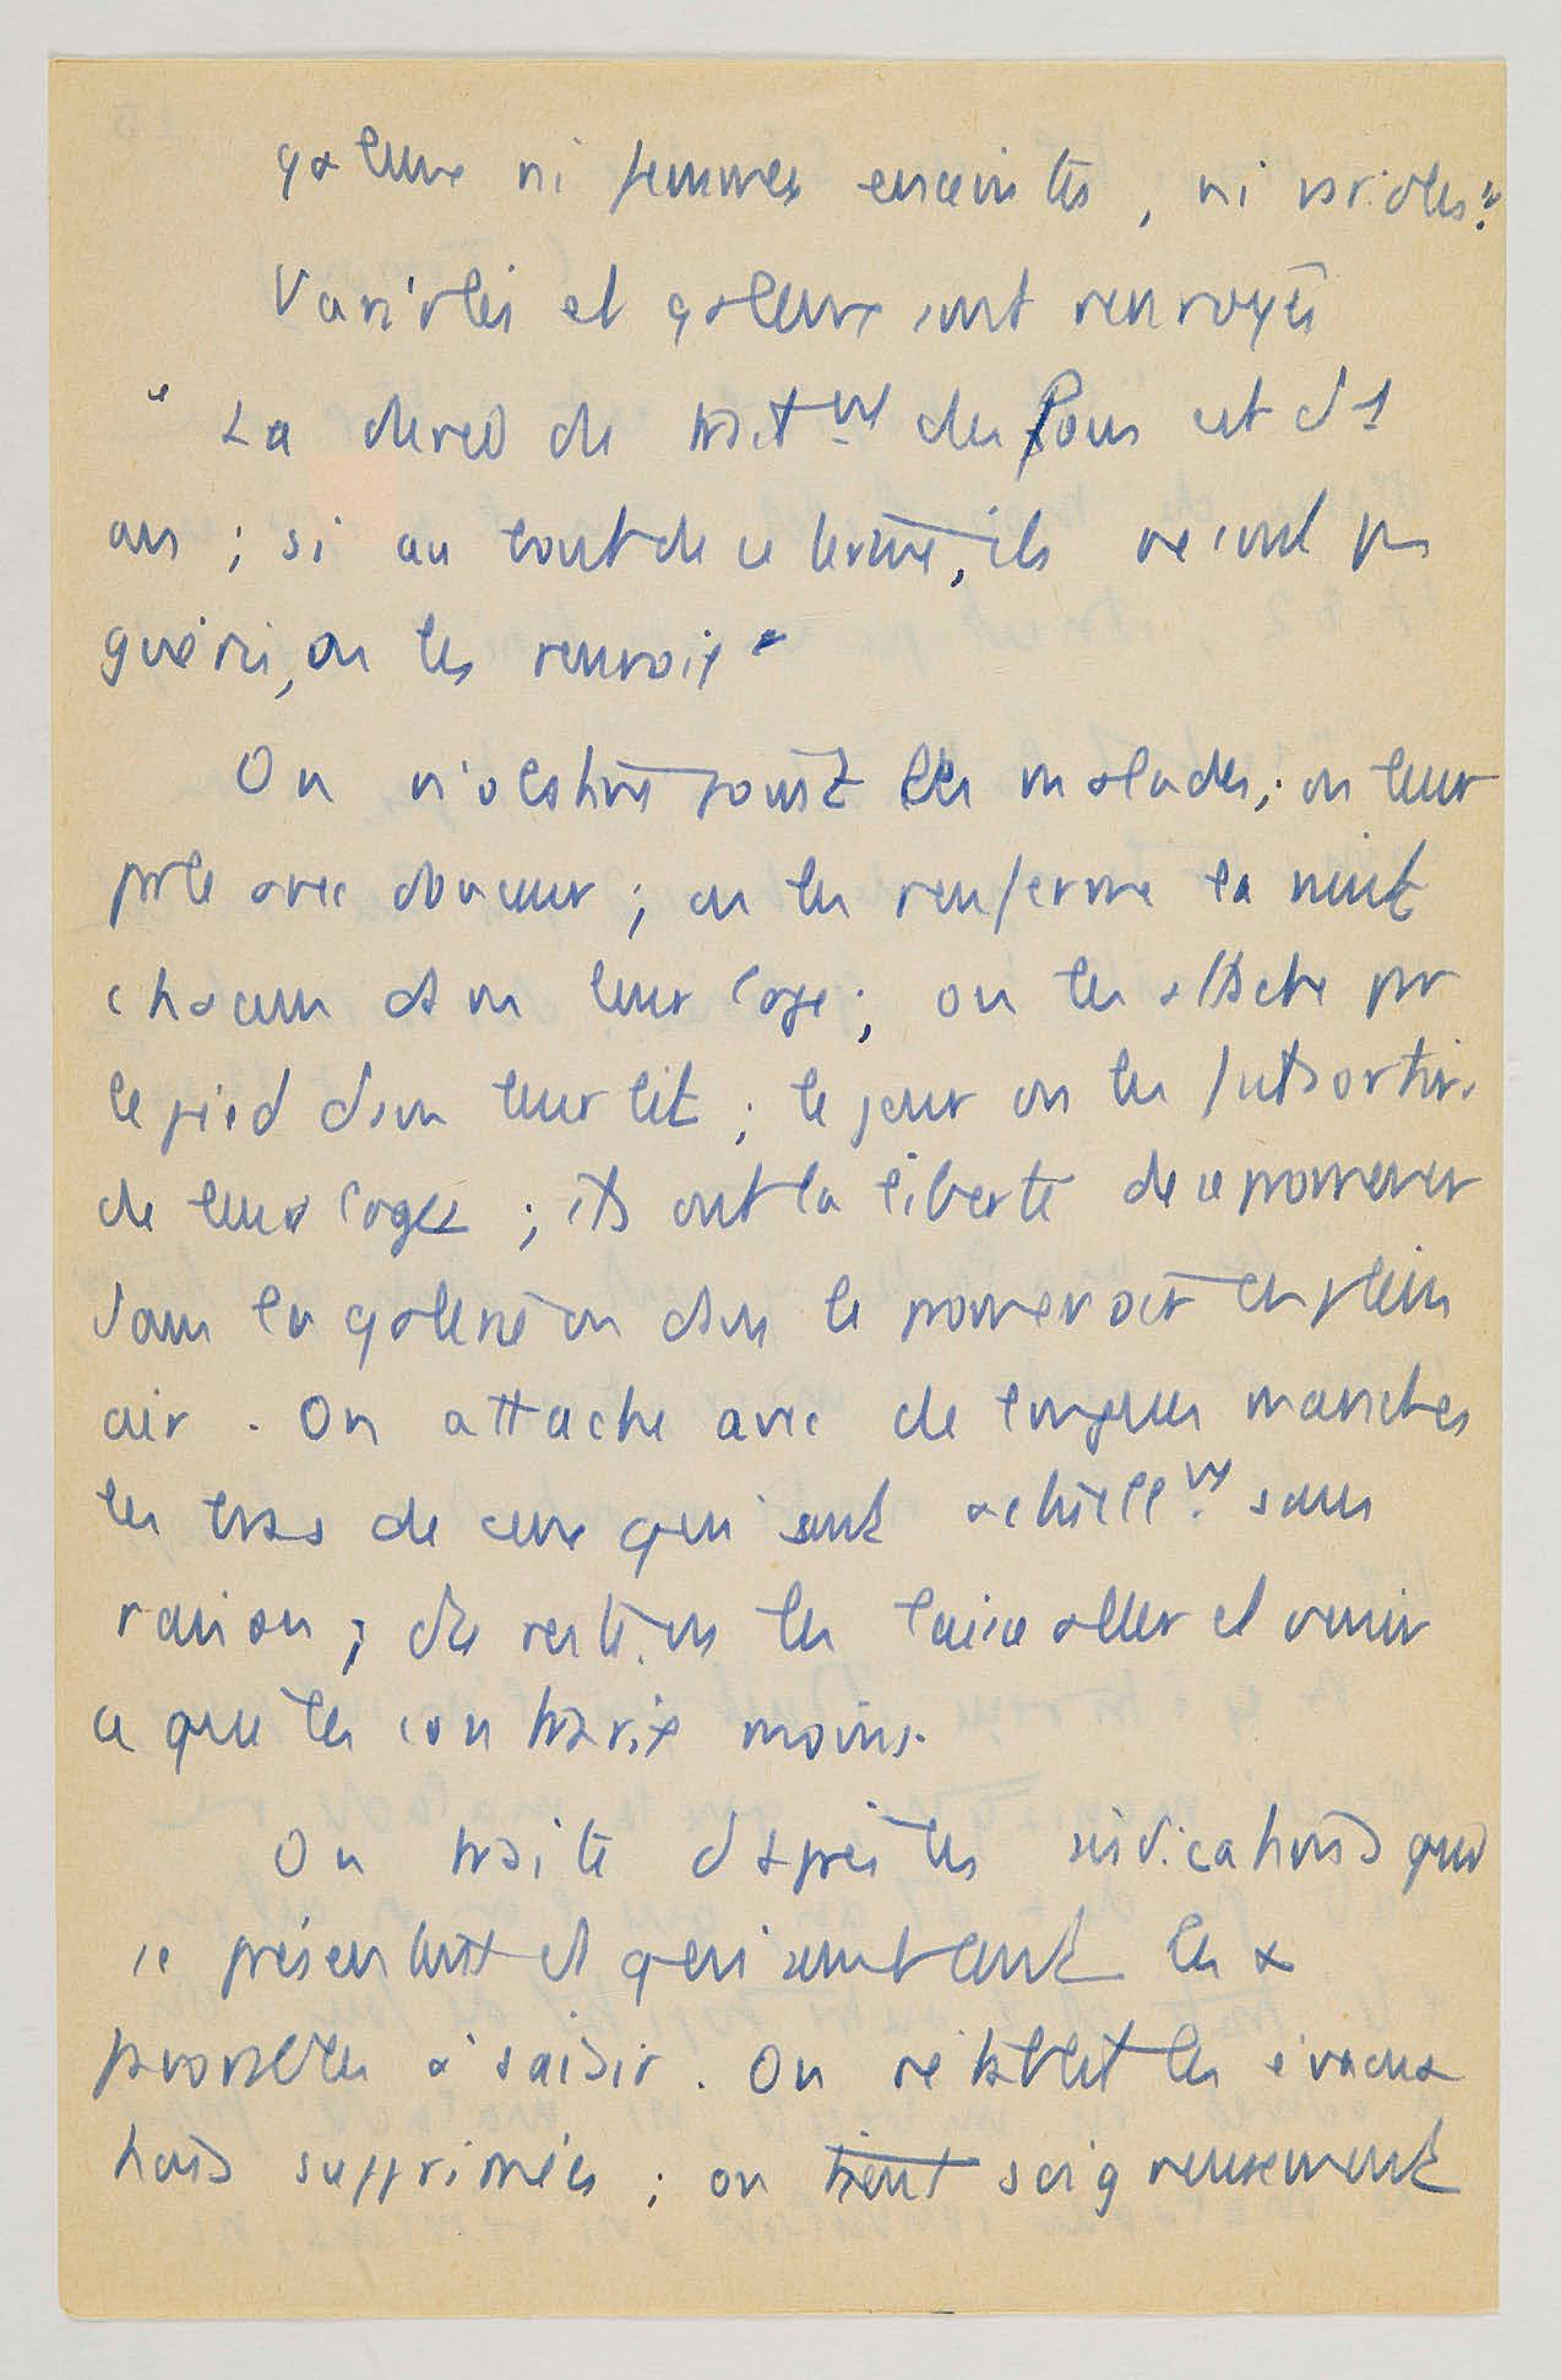 galeux ni femmes enceintes, ni varioles."
Variolés et galeux sont renvoyés
" La durée de trait^mt des fous est d'1
an ; si au bout de ce terme, ils ne sont pas
guéris, on les renvoie "
On n'obstine point les malades ; on leur
parle avec douceur ; on les renferme la nuit
chacun dans leur loge ; on les attache par
le pied dans leur lit ; le jour on les fait sortir
de leurs loges ; ils ont la liberté de se promener
dans la galerie ou dans le promenoir en plein
air . On attache avec de longues manches
les bras de ceux qui sont actuell^mt sans
raison ; du reste, on les laisse aller et venir
ce qui les contrarie moins.
On traite d'après les indications qui
se présentent et qui semblent les +
favorables à saisir . On rétablit les évacua
tions supprimées ; on tient soigneusement